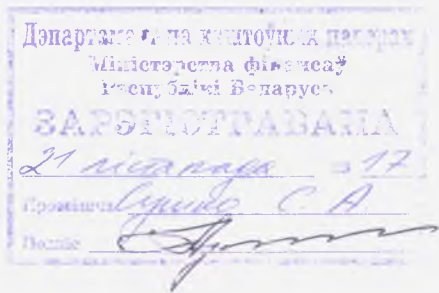 Дэпартамент па каштоўных паперах
Міністэрства фінансаў
Рэспублікі Беларусь
ЗАРЭГІСТРАВАНА
21 лістапада 17
Прозвішча С. А
Подпіс